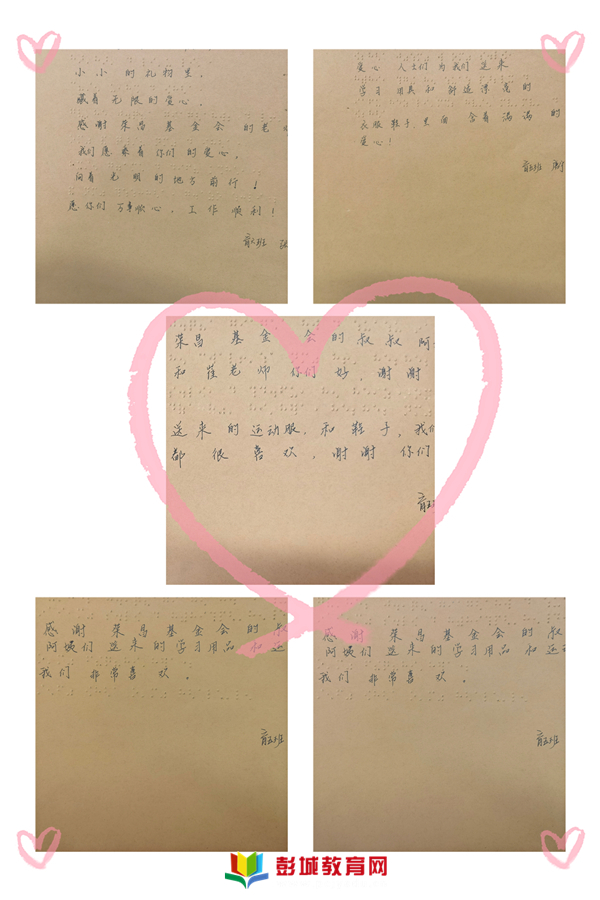 小小的礼物里,
藏着无限的爱心。
感谢荣昌基金会的老
我们愿乘着你们的爱心,
向着光明的地方前行!
愿你们万事顺心,工作顺利!
盲五班
爱心人士们为我们送来
学习用具和舒适漂亮的
衣服鞋子,里面含着满满的
爱心!
盲五班
荣昌基金会的叔叔阿
和崔老师你们好,谢谢
送来的运动服,和鞋子,我们
都很喜欢,谢谢你们
盲五
感谢荣昌基金会的叔
阿姨们送来的学习用品和运
我们非常喜欢。
盲五班
感谢荣昌基金会的叔
阿姨们送来的学习用品和运动
我们非常喜欢。
盲五班
彭城教育网